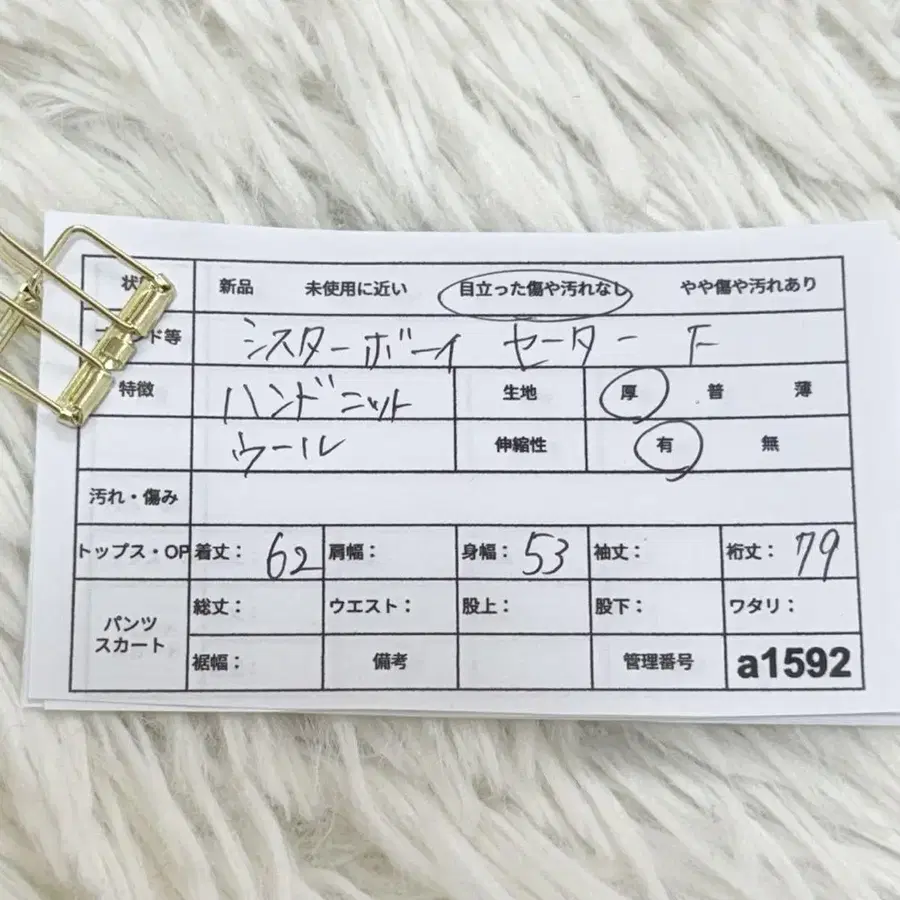 状 新品 未使用に近い 目立った傷や汚れなし やや傷や汚れあり
ド等 シスターボーイ セーター F
特徴 ハンドニット 生地 厚 普 薄
ウール 伸縮性 有 無
汚れ・傷み
トップス・OP 着丈: 62 肩幅: 身幅: 53 袖丈: 裄丈: 79
パンツ スカート 総丈: ウエスト: 股上: 股下: ワタリ:
裾幅: 備考 管理番号 a1592